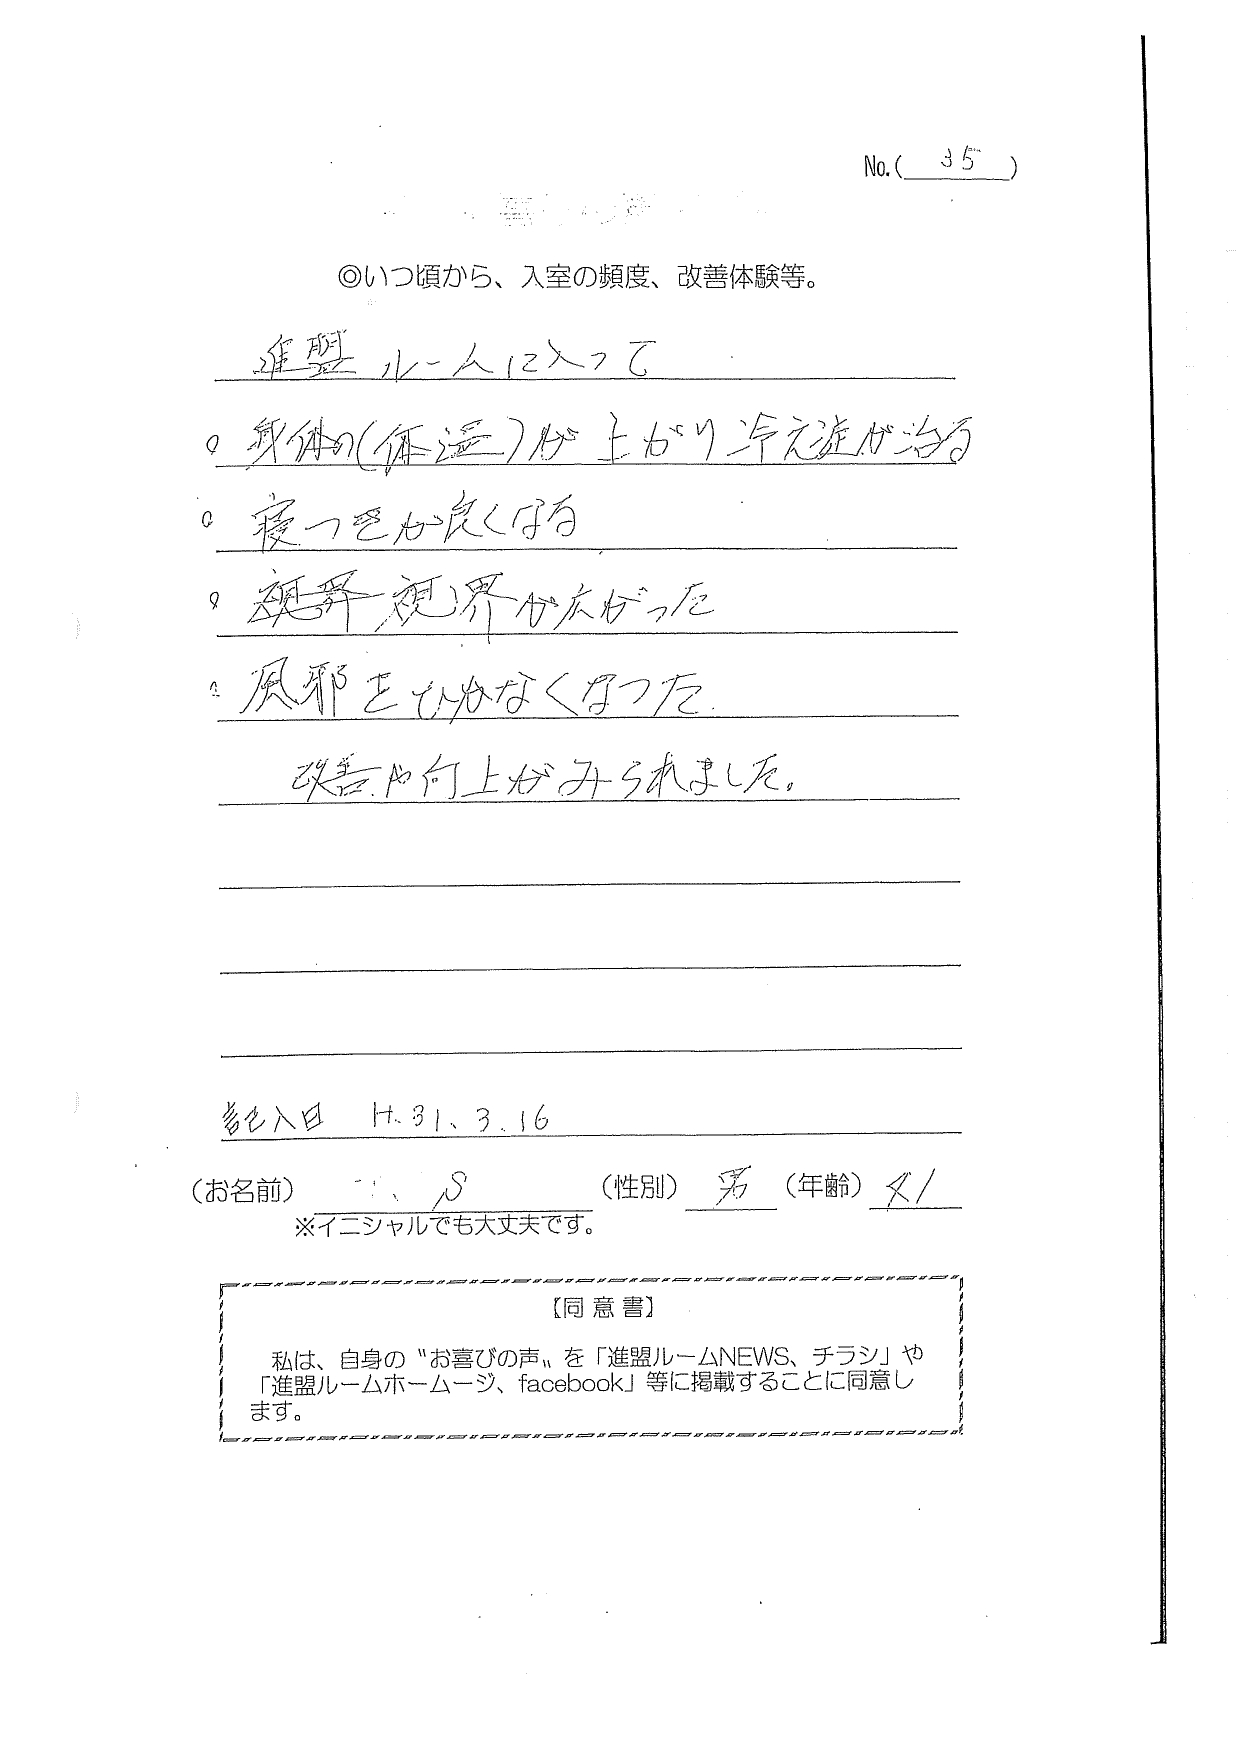 No.( 35 )
◎いつ頃から、入室の頻度、改善体験等。
進盟ルームに入って
。身体の(体温)が上がり冷え症が治る
。寝つきが良くなる
。視界 視界が広がった
。風邪をひかなくなった
改善や向上がみられました。
記入日 H.31、3.16
(お名前) 、S (性別) 男 (年齢) 41
※イニシャルでも大丈夫です。
【同意書】
私は、自身の〝お喜びの声〟を「進盟ルームNEWS、チラシ」や
「進盟ルームホームージ、facebook」等に掲載することに同意し
ます。